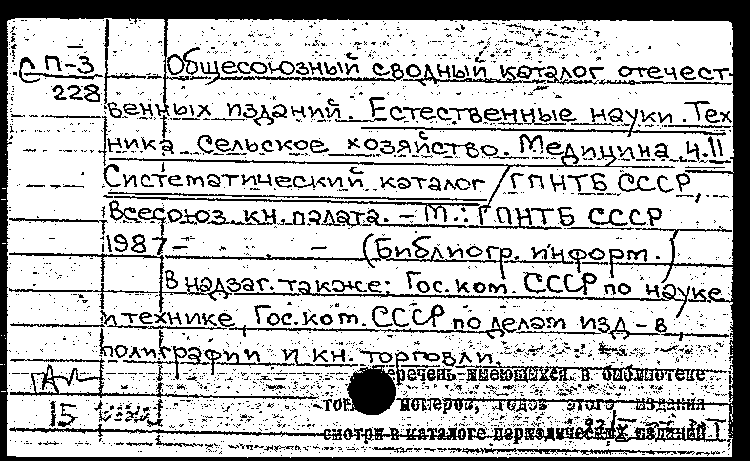 СП-3 Общесоюзный сводный каталог отечест-
228
венных изданий. Естественные науки. Тех
ника. Сельское хозяйство. Медицина. ч.II
Систематический каталог / ГПНТБ СССР,
Всесоюз. кн. палата. – М.: ГПНТБ СССР
1987 – – (Библиогр. информ.)
В надзаг. также: Гос. ком. СССР по науке
и технике, Гос. ком. СССР по делам изд-в,
полиграфии и кн. торговли.
речень имеющихся в библиотеке
15
номеров, годов этого издания
смотри в каталоге периодических изданий